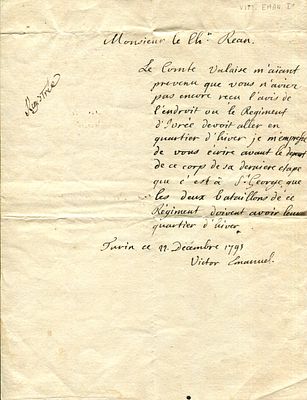 VITT. EMAN. I°
Monsieur le Ch.r Rean.
Le Comte Valaise m'aïant
prevenu que vous n'avez
pas encore recu l'avis de
l'endroit ou le Regiment
d'Ivrée devoit aller en
quartier d'hiver je m'empresse
de vous écrire avant le depart
de ce corps de sa derniere étape
que c'est à St. George que
les deux bataillons de ce
Régiment doivent avoir leurs
quartier d'hiver.
Turin ce 22 Decembre 1793
Victor Emanuel.